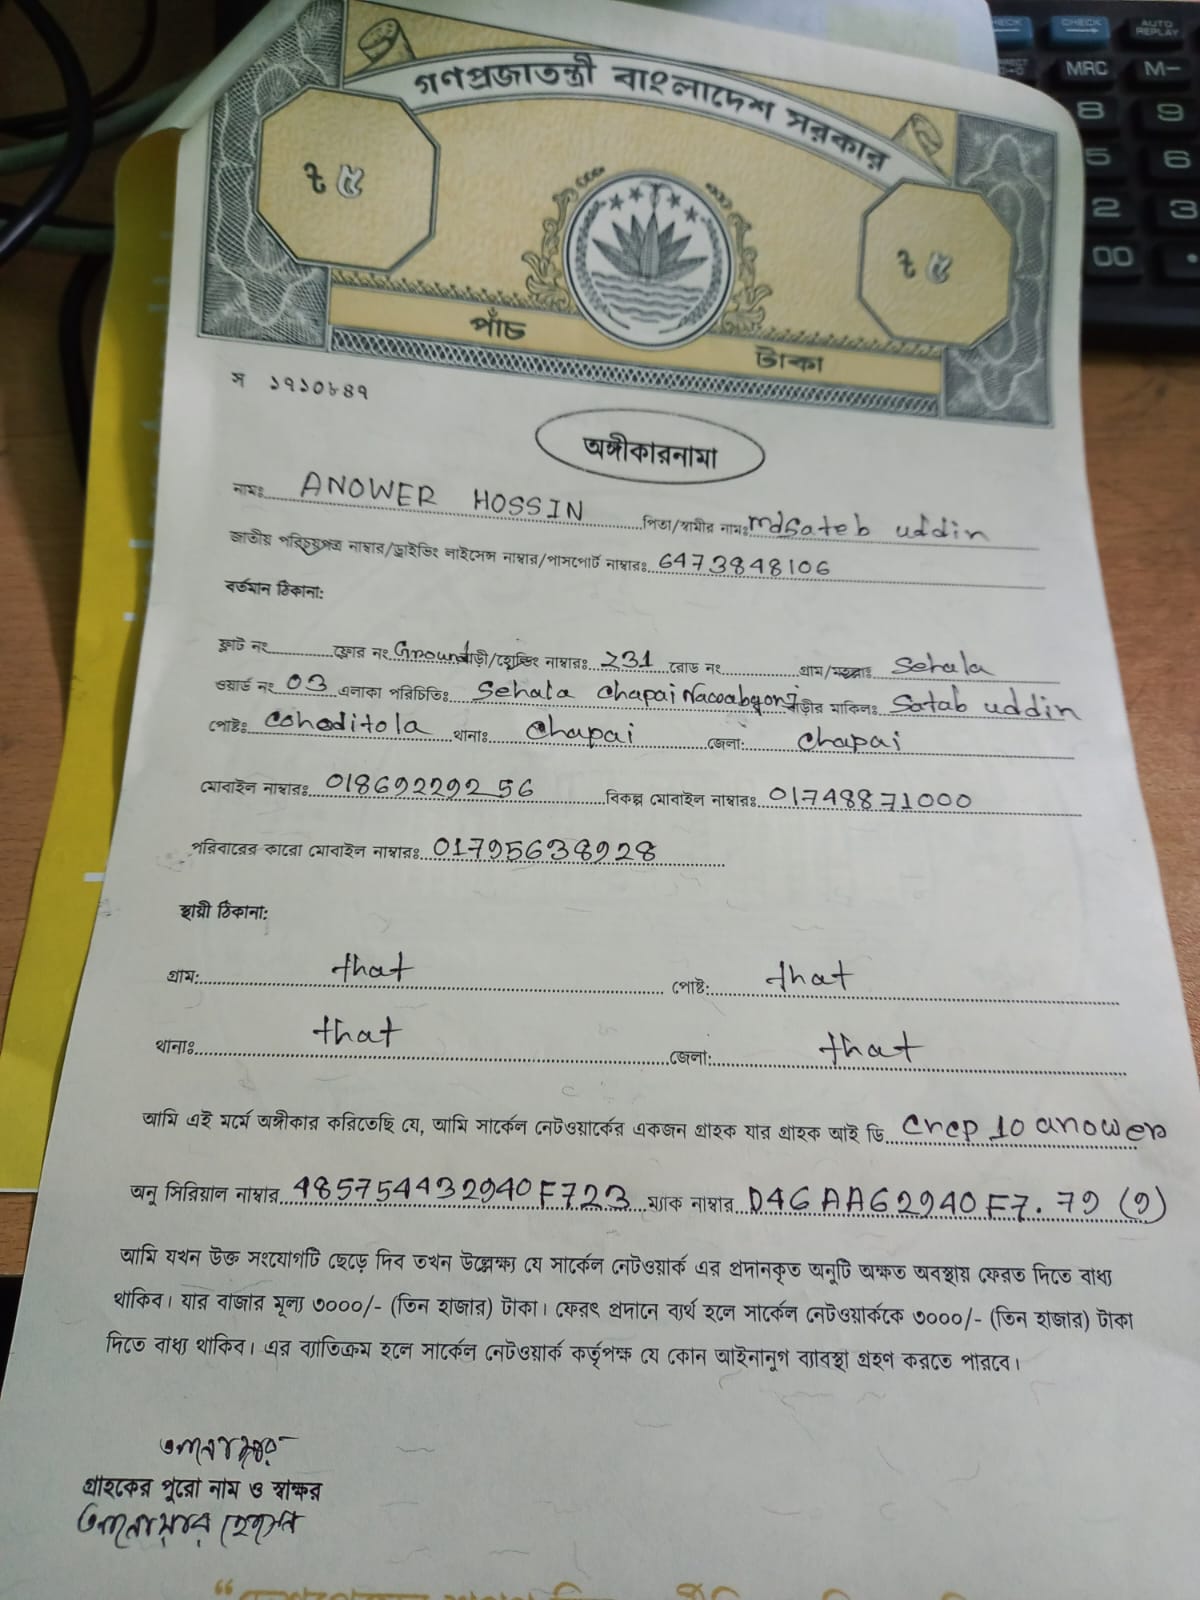 গণপ্রজাতন্ত্রী বাংলাদেশ সরকার
৳ ৫
৳ ৫
পাঁচ টাকা
স ১৭১০৮৪৭
অঙ্গীকারনামা
নামঃ ANOWER HOSSIN পিতা/স্বামীর নামঃ MdSateb uddin
জাতীয় পরিচয়পত্র নাম্বার/ড্রাইভিং লাইসেন্স নাম্বার/পাসপোর্ট নাম্বারঃ 6473848106
বর্তমান ঠিকানা:
ফ্লাট নং ফ্লোর নং Ground বাড়ী/হোল্ডিং নাম্বারঃ 231 রোড নং গ্রাম/মহল্লাঃ Sehala
ওয়ার্ড নং 03 এলাকা পরিচিতিঃ Sehala Chapai বাড়ীর মালিকঃ Satab uddin
পোষ্টঃ থানাঃ Chapai জেলা: Chapai
মোবাইল নাম্বারঃ 01869229256 বিকল্প মোবাইল নাম্বারঃ 01748871000
পরিবারের কারো মোবাইল নাম্বারঃ 01795638928
স্থায়ী ঠিকানা:
গ্রাম: that পোষ্ট: that
থানাঃ that জেলা: that
আমি এই মর্মে অঙ্গীকার করিতেছি যে, আমি সার্কেল নেটওয়ার্কের একজন গ্রাহক যার গ্রাহক আই ডি crep 10 anower
অনু সিরিয়াল নাম্বার 485754432940F723 ম্যাক নাম্বার D46AA62940F7. 79 (9)
আমি যখন উক্ত সংযোগটি ছেড়ে দিব তখন উল্লেক্ষ্য যে সার্কেল নেটওয়ার্ক এর প্রদানকৃত অনুটি অক্ষত অবস্থায় ফেরত দিতে বাধ্য
থাকিব। যার বাজার মূল্য ৩০০০/- (তিন হাজার) টাকা। ফেরৎ প্রদানে ব্যর্থ হলে সার্কেল নেটওয়ার্ককে ৩০০০/- (তিন হাজার) টাকা
দিতে বাধ্য থাকিব। এর ব্যাতিক্রম হলে সার্কেল নেটওয়ার্ক কর্তৃপক্ষ যে কোন আইনানুগ ব্যাবস্থা গ্রহণ করতে পারবে।
গ্রাহকের পুরো নাম ও স্বাক্ষর
আনোয়ার হোসেন
CHECK
CHECK
AUTO REPLAY
MRC
M-
8
9
5
6
2
3
00
.